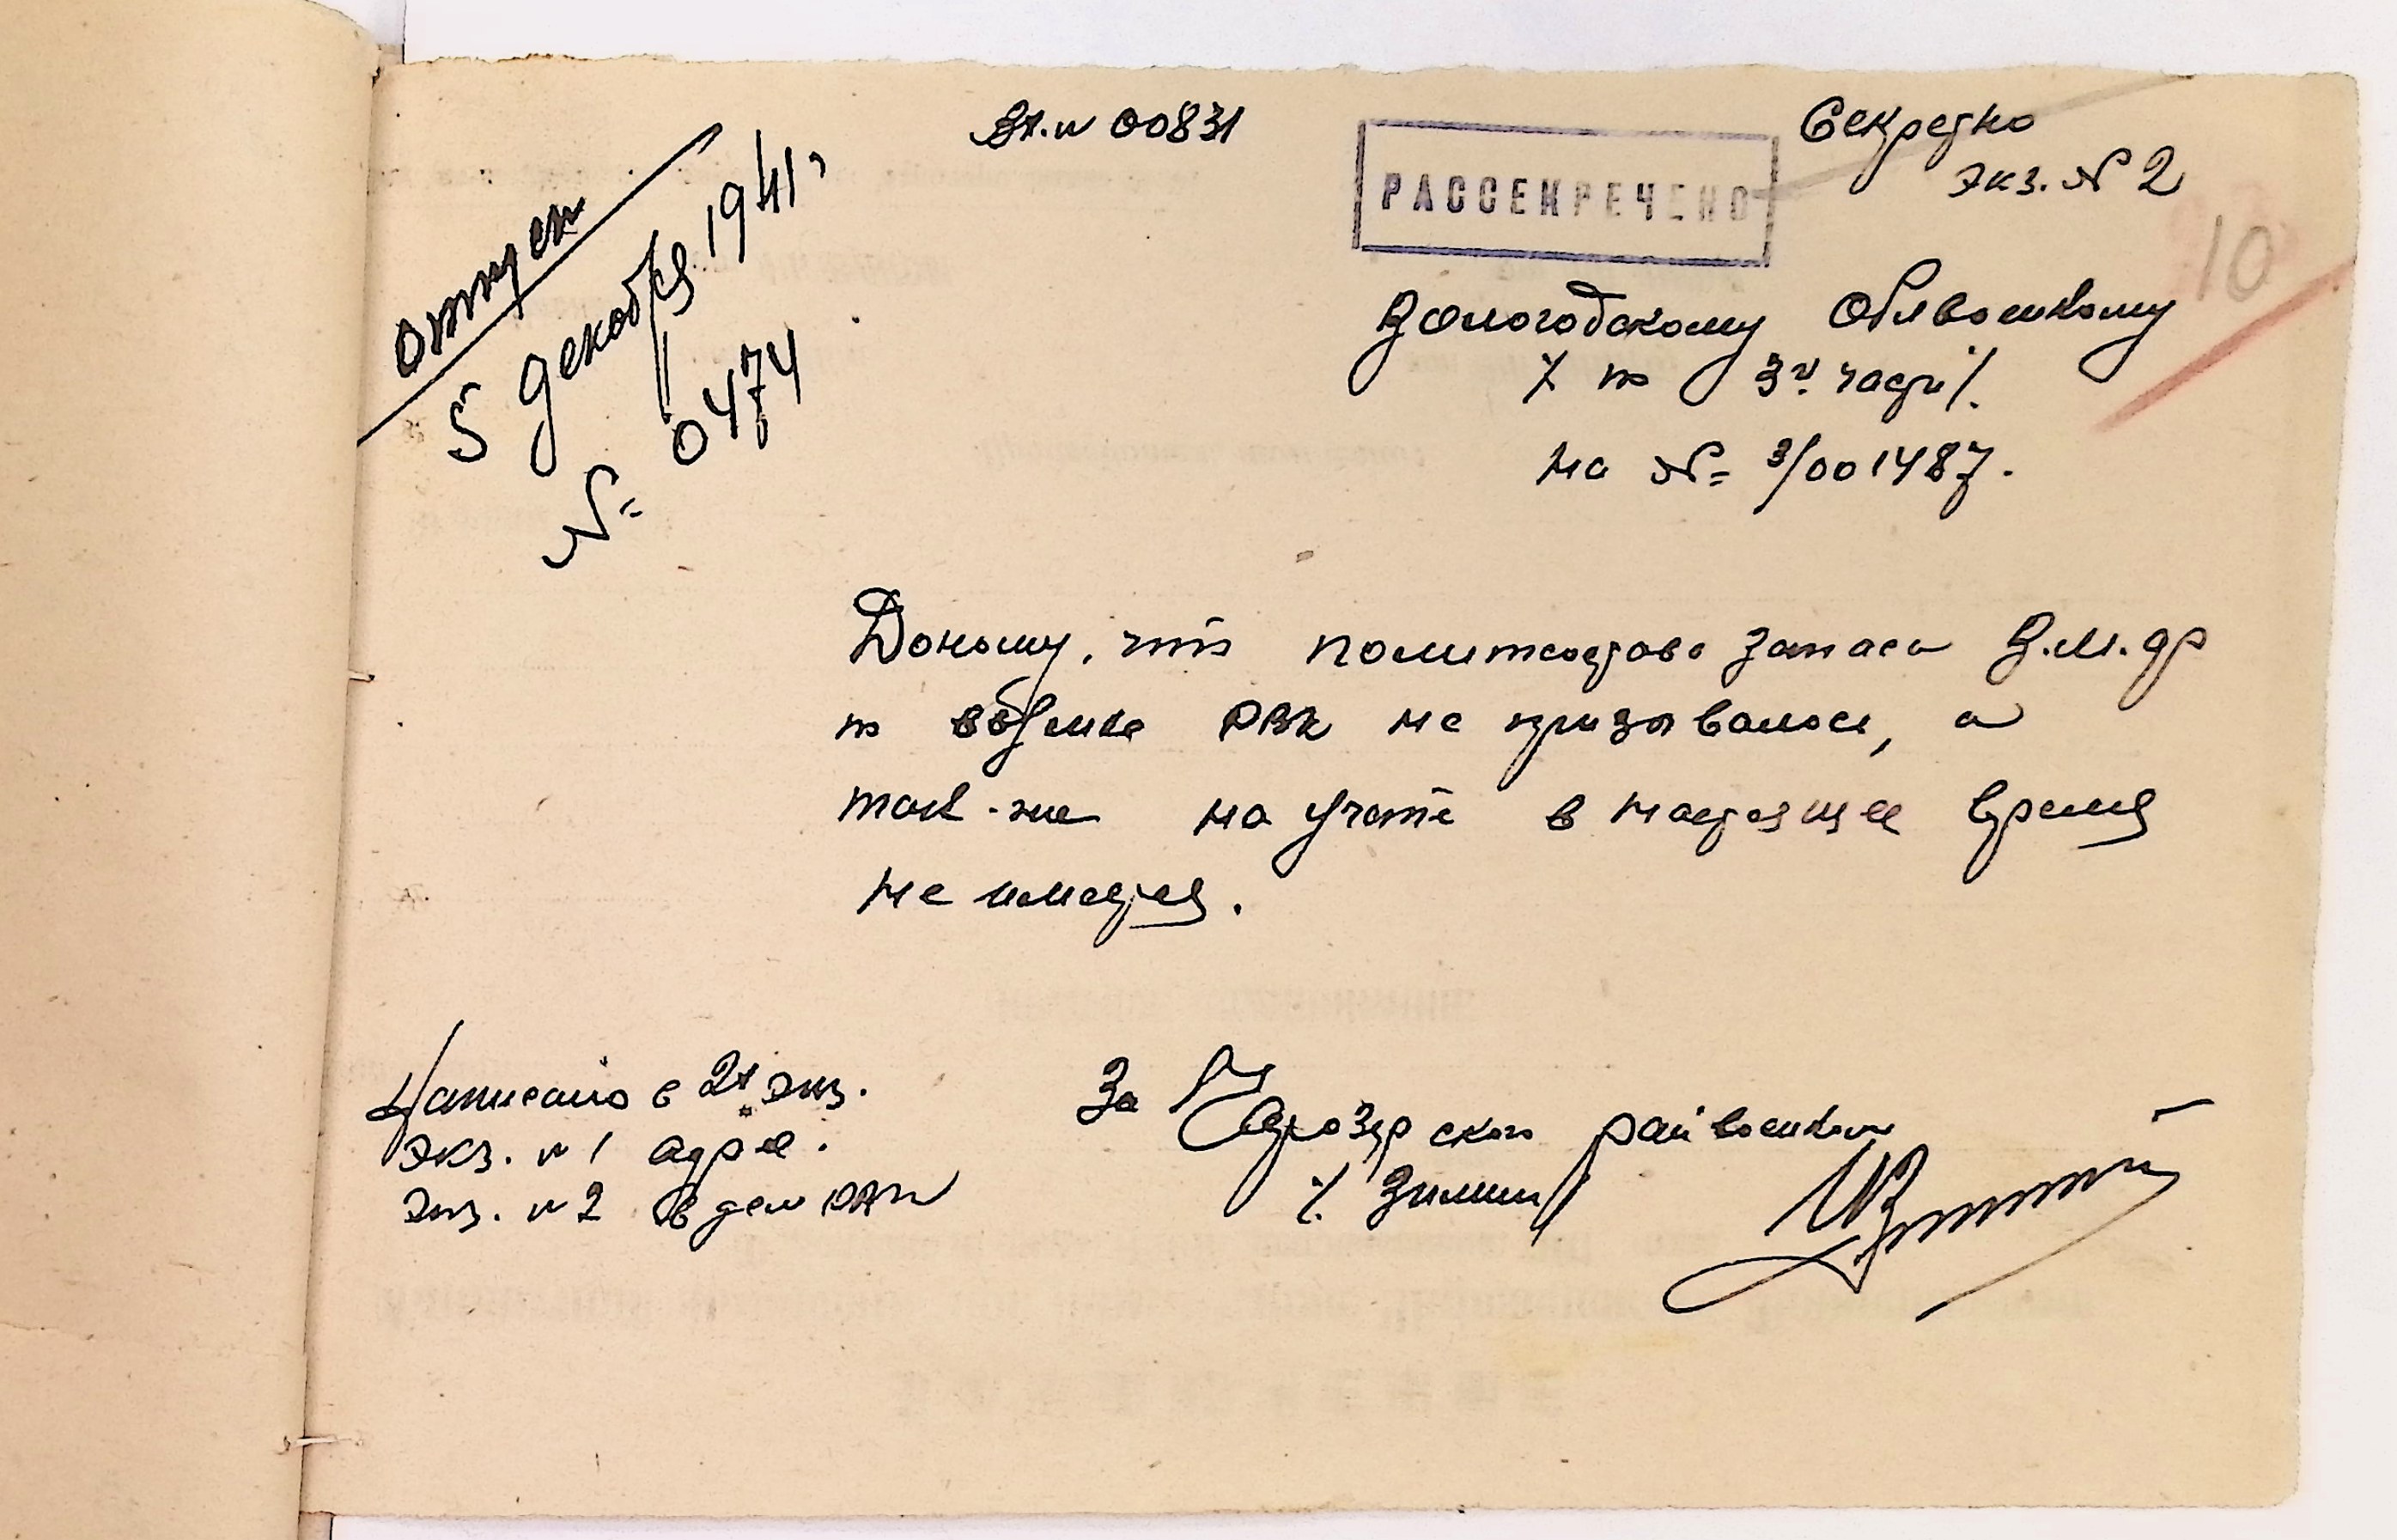 Вх. № 00831
Секретно
экз. № 2
РАССЕКРЕЧЕНО
10
отпуск
5 декабря 1941 г
№ 0474
Вологодскому Облвоенкому
/ по 3й части /.
на № 3/001487.
Доношу, что политсостава запаса В.М.ф
по РВК не призывалось, а
так-же на учете в настоящее время
не имеется.
Написано в 2х экз.
экз. № 1 адрес.
экз. № 2 в дело РВК
За Чарозерского райвоенкома
/ Зимин /